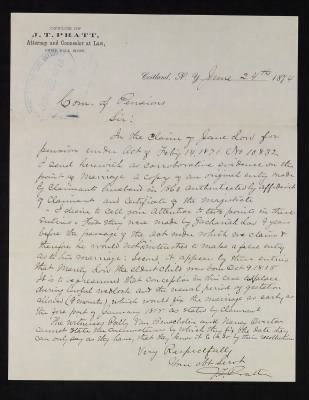 OFFICE OF
J. T. PRATT,
Attorney and Counselor at Law,
Cortland, N. Y. June 24th 1874
Com. of Pensions
Sir:
In the Claim of Jane Low for
pension under Act of Feby 14, 1871 (No 10,832
I send herewith as corroborative evidence on the
point of marriage a copy of an original entry made
by Claimants husband in 1860 authenticated by affidavit
of Claimant and Certificate of the magistrate
I desire to call your attention to two points in these
entries. First they were made by Jedediah Low 9 years
before the passage of the act under which we claim &
therefore he would not make a false entry
as to his marriage: Second, it appears by these entries
that Mandy Low the eldest child was born Oct 9 1815
It is presumed that conception in this case took place
during lawful wedlock and the usual period of gestation
allowed (9 months), which would fix the marriage as early as
the fore part of January 1815 as stated by Claimant
The witnesses Polly Van and Nancy
cannot state the circumstances by which they fix the date. They
can only say as they have, that they know it to be by their recollection
Very Respectfully
Your obt Servt
J. T. Pratt